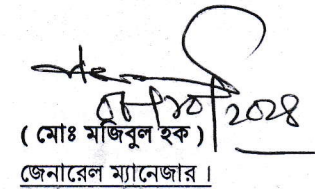 ২০২৪
( মোঃ মজিবুল হক )
জেনারেল ম্যানেজার ।